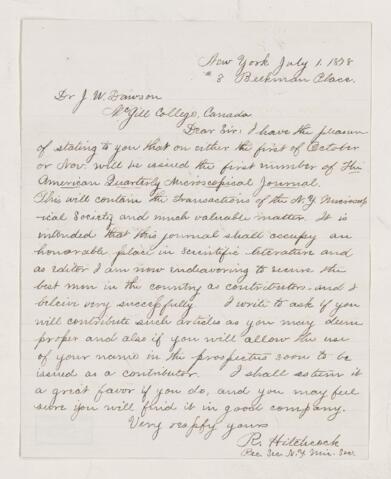 New York July 1. 1878
# 8 Beekman Place.
Dr J. W. Dawson
McGill College, Canada
Dear Sir: I have the pleasure
of stating to you that on either the first of October
or Nov. will be issued the first number of The
American Quarterly Microscopical Journal.
This will contain the transactions of the N.Y. Microscop-
ical Society and much valuable matter. It is
intended that this journal shall occupy an
honorable place in scientific literature and
as editor I am now endeavoring to secure the
best men in the country as contributors. and I
beleive very successfully I write to ask if you
will contribute such articles as you may deem
proper and also if you will allow the use
of your name in the prospectus soon to be
issued as a contributor. I shall esteem it
a great favor if you do, and you may feel
sure you will find it in good company.
Very respfy yours
R. Hitchcock
Rec. Sec. N.Y. Mic. Soc.